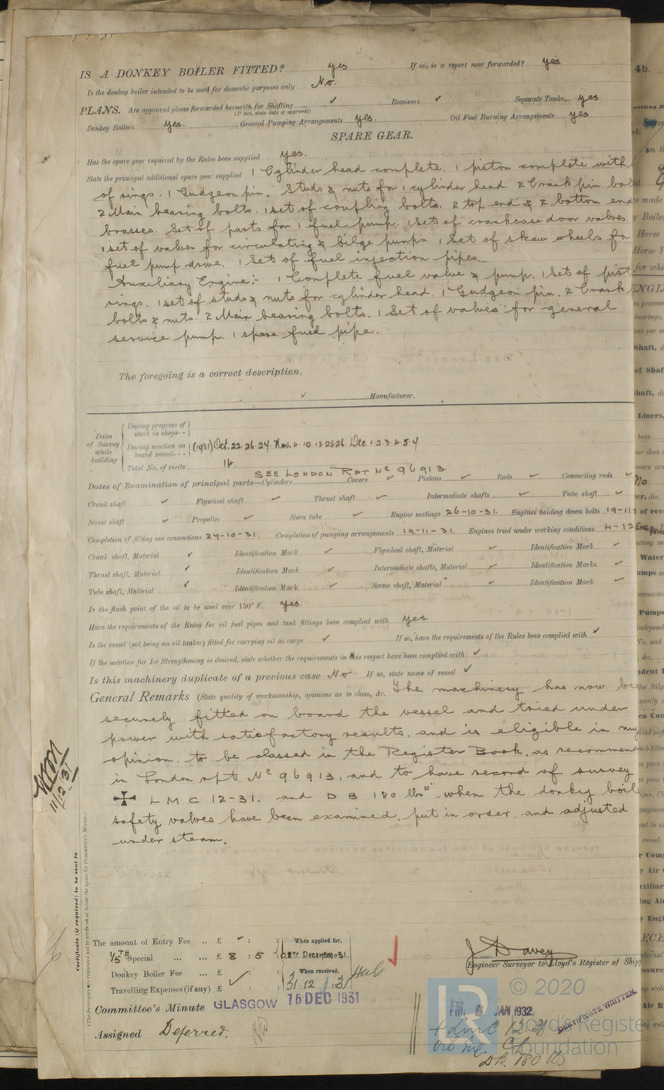 IS A DONKEY BOILER FITTED? yes If so, is a report now forwarded? yes
Is the donkey boiler intended to be used for domestic purposes only No
PLANS. Are approved plans forwarded herewith for Shafting ✓ Receivers ✓ Separate Tanks yes
(If not, state date of approval)
Donkey Boilers yes. General Pumping Arrangements yes. Oil Fuel Burning Arrangements yes
SPARE GEAR.
Has the spare gear required by the Rules been supplied yes.
State the principal additional spare gear supplied 1 Cylinder head complete. 1 piston complete with
of rings. 1 Gudgeon pin. Studs & nuts for 1 cylinder head 2 Crank pin
2 Main bearing bolts. 1 set of coupling bolts. 2 top end & 2 bottom end
brasses. Set of parts for 1 fuel pump. 1 set of crankcase door valves
1 set of valves for circulating & bilge pumps. 1 Set of skew wheels for
fuel pump drive. 1 Set of fuel injection pipes.
Auxiliary Engine:- 1 Complete fuel valve & pump. 1 Set of
rings. 1 set of studs & nuts for cylinder head. 1 Gudgeon pin. 2 Crank
bolts & nuts. 2 Main bearing bolts. 1 Set of valves for general
service pump. 1 spare fuel pipe.
The foregoing is a correct description,
✓ Manufacturer.
Dates of Survey while building
During progress of work in shops - -
During erection on board vessel - - - (1931) Oct. 22. 26. 27. Nov. 4. 10. 18. 25. 26. Dec. 1. 2. 3. 4. 5. 7
Total No. of visits 16
SEE LONDON RPT Nº 96913
Dates of Examination of principal parts—Cylinders Covers ✓ Pistons ✓ Rods ✓ Connecting rods ✓
Crank shaft ✓ Flywheel shaft ✓ Thrust shaft ✓ Intermediate shafts ✓ Tube shaft ✓
Screw shaft ✓ Propeller ✓ Stern tube ✓ Engine seatings 26-10-31. Engines holding down bolts 19-11
Completion of fitting sea connections 24-10-31. Completion of pumping arrangements 19-11-31. Engines tried under working conditions 4-12
Crank shaft, Material ✓ Identification Mark ✓ Flywheel shaft, Material ✓ Identification Mark ✓
Thrust shaft, Material ✓ Identification Mark ✓ Intermediate shafts, Material ✓ Identification Marks ✓
Tube shaft, Material ✓ Identification Mark ✓ Screw shaft, Material ✓ Identification Mark ✓
Is the flash point of the oil to be used over 150° F. yes.
Have the requirements of the Rules for oil fuel pipes and tank fittings been complied with yes
Is the vessel (not being an oil tanker) fitted for carrying oil as cargo ✓ If so, have the requirements of the Rules been complied with ✓
If the notation for Ice Strengthening is desired, state whether the requirements in this respect have been complied with ✓
Is this machinery duplicate of a previous case No. If so, state name of vessel ✓
General Remarks (State quality of workmanship, opinions as to class, &c. The machinery has now
securely fitted on board the vessel and tried under
power with satisfactory results, and is eligible in my
opinion, to be classed in the Register Book, as recommend
in London rpt. Nº 96913, and to have record of survey
✠ L M C 12-31. and D B 180 lbs" when the donkey
safety valves have been examined, put in order, and adjusted
under steam.
11/12/31
Certificate (if required) to be sent to
The amount of Entry Fee .. £ : : When applied for,
1/5TH Special .. £ 8 : 5 : Dec 31
Donkey Boiler Fee .. £ : : When received,
Travelling Expenses (if any) £ : : 31.12.31
J. Davey
Engineer Surveyor to Lloyd's Register of
Committee's Minute GLASGOW 15 DEC 1931
Assigned Deferred.
FRI. JAN 1932
CERTIFICATE WRITTEN.
+ LMC 12.31
DB. 180 lb
LR © 2020
Lloyd's Register
Foundation